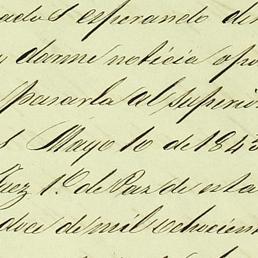 ados esperando di
y darme noticia opo
pasarla al superio
s Mayo 10 de 1843
Juez 1º de Paz de esta
doce de mil ochocien